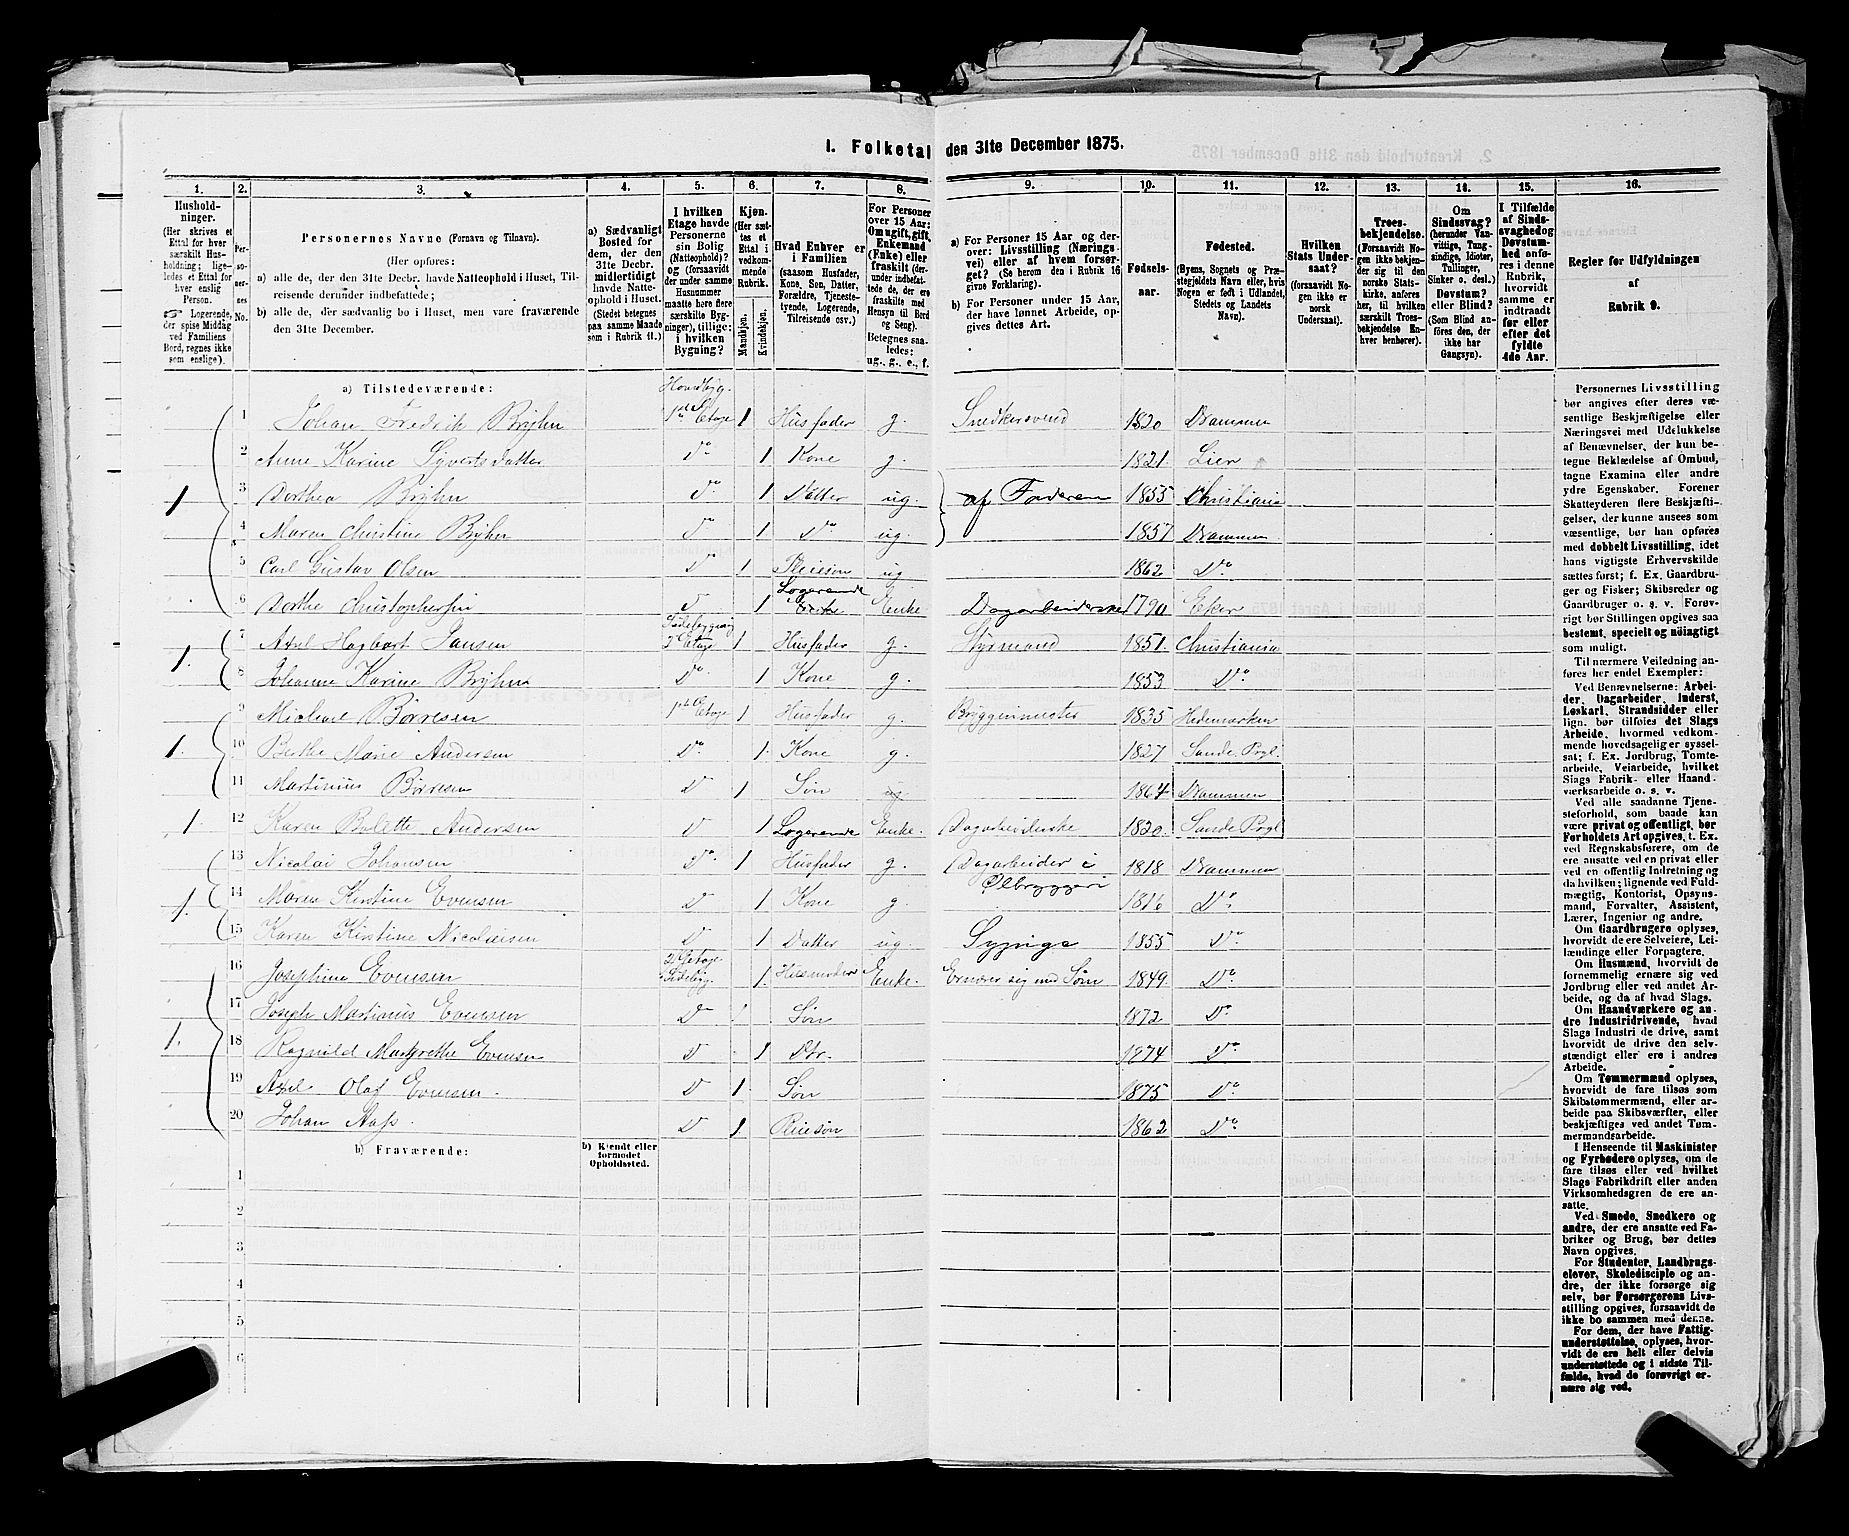 1. Folketal den 31te December 1875.
1. 2. 3. 4. 5. 6. 7. 8. 9. 10. 11. 12. 13. 14. 15. 16.
Hushold-
ninger.
(Her skrives et
Ettal for hver
særskilt Hus-
holdning; lige-
ledes et Ettal for
hver enslig
Person.
Logerende,
der spise Middag
ved Familiens
Bord, regnes ikke
som enslige).
Per-
so-
ner-
nes
No.
Personernes Navne (Fornavn og Tilnavn).
(Her opføres:
a) alle de, der den 31te Decbr. havde Natteophold i Huset, Til-
reisende derunder indbefattede;
b) alle de, der sædvanlig bo i Huset, men vare fraværende
den 31te December.
a) Sædvanligt
Bosted for
dem, der den
31te Decbr.
midlertidigt
havde Natte-
ophold i Huset.
(Stedet betegnes
paa samme Maade
som i Rubrik 11.)
I hvilken
Etage havde
Personerne
sin Bolig
(Natteophold)?
og (forsaavidt
der under samme
Husnummer
maatte høre flere
særskilte Byg-
ninger), tillige:
i hvilken
Bygning?
Kjøn.
(Her sæt-
tes et
Ettal i
vedkom-
mende
Rubrik.
Mandkjøn.
Kvindekjøn.
Hvad Enhver er
i Familien
(saasom Husfader,
Kone, Søn, Datter,
Forældre, Tjeneste-
tyende, Logerende,
Tilreisende osv.)
For Personer
over 15 Aar:
Om ugift, gift,
Enkemand
(Enke) eller
fraskilt (der-
under indbe-
fattede de, der ere
fraskilte med
Hensyn til Bord
og Seng).
Betegnes saa-
ledes:
ug., g., e., f.
a) For Personer 15 Aar og der-
over: Livsstilling (Nærings-
vei) eller af hvem forsør-
get? (Se herom den i Rubrik 16
givne Forklaring).
b) For Personer under 15 Aar,
der have lønnet Arbeide, op-
gives dettes Art.
Fødsels-
aar.
Fødested.
(Byens, Sognets og Præ-
stegjeldets Navn eller, hvis
Nogen er født i Udlandet,
Stedets og Landets
Navn).
Hvilken
Stats Under-
saat?
(forsaavidt No-
gen ikke er
norsk
Undersaat).
Troes-
bekjendelse.
(Forsaavidt No-
gen ikke bekjen-
der sig til den
norske Stats-
kirke, anføres
her, til hvilken
særskilt Troes-
bekjendelse En-
hver henhører).
Om
Sindssvag?
(herunder Van-
vittige, Tung-
sindige, Idioter,
Tullinger,
Sinker o. desl.)
Døvstum?
eller Blind?
(Som Blind an-
føres den, der
ikke har
Gangsyn).
I Tilfælde
af Sinds-
svaghed og
Døvstum-
hed anfø-
res i denne
Rubrik,
hvorvidt
samme er
indtraadt
før eller
efter det
fyldte
4de Aar.
Regler for Udfyldningen
af
Rubrik 9.
a) Tilstedeværende:
1 Johan Fredrik Brÿhn Hovedbyg. 1ste Etage 1 Husfader g. Snedkersvend 1820 Drammen
1 2 Anne Karine Syvertsdatter Do 1 Kone g. 1821. Lier
3 Dorthea Brÿhn Do 1 Datter ug. af Faderen 1855 Christiania
4 Maren Christine Brÿhn Do 1 Do ug. 1857 Drammen
5 Carl Gustav Olsen D 1 Pleiesøn ug 1862 Do
6 Dorthe Christophersen D 1 Logerende Enke Dagarbeiderske 1790 Eker
1. 7 Axel Hagbart Jansen Sidebygning 2 Etage 1 Husfader g. Styrmand 1851. Christiania
8 Johanne Karine Brÿhn Do 1 Kone g. 1853 Do
9 Michael Børresen 1ste Etage 1 Husfader g. Bryggerimester 1835 Hedemarken
1. 10 Berthe Marie Andersen Do 1. Kone g. 1827 Sande Prgl.
11 Martinius Børresen D 1 Søn ug 1864 Drammen
1. 12 Karen Bolette Andersen D 1 Logerende Enke. Dagarbeiderske 1820. Sande Prgl
13 Nicolai Johansen Do 1 Husfader g. Dagarbeider i Ølbryggeri 1818 Drammen
1. 14 Maren Kirstine Evensen D 1 Kone g. 1816 Do
15 Karen Kirstine Nicolaisen D 1 Datter ug. Sypige 1855 Do
16 Josephine Evensen 2 Etage Sidebyg. 1. Husmoder Enke. Ernærer sig med Søm 1849. Do
17 Joseph Martinius Evensen Do 1 Søn 1872 Do
1. 18 Ragnild Margrethe Evensen D 1 Dtr. 1874 Do
19 Axel Olaf Evensen. D 1. Søn 1875 Do
20 Johan D 1. Pleiesøn 1862 Do
b) Fraværende:
b) Kjendt eller
formodet
Opholdssted.
1
2
3
4
5
6
Personernes Livsstilling
bør angives efter deres væ-
sentlige Beskjæftigelse eller
Næringsvei med Udelukkelse
af Benævnelser, der kun be-
tegne Beklædelse af Ombud,
tagne Examina eller andre
ydre Egenskaber. Forener
Skatteyderen flere Beskjæfti-
gelser, der kunne ansees som
væsentlige, bør han opføres
med dobbelt Livsstilling, idet
hans vigtigste Erhvervskilde
sættes først; f. Ex. Gaardbru-
ger og Fisker; Skibsreder og
Gaardbruger o. s. v. Forøv-
rigt bør Stillingen opgives saa
bestemt, specielt og nøiagtigt
som muligt.
Til nærmere Veiledning an-
føres her endel Exempler:
Ved Benævnelserne: Arbei-
der, Dagarbeider, Inderst,
Løskarl, Strandsidder eller
lign. bør tilføies det Slags
Arbeide, hvormed vedkom-
mende hovedsagelig er syssel-
sat; f. Ex. Jordbrug, Tomte-
arbeide, Veiarbeide, hvilket
Slags Fabrik- eller Haand-
værksarbeide o. s. v.
Ved alle saadanne Tjene-
steforhold, som baade kan
være privat og offentligt, bør
Forholdets Art opgives, t. Ex.
ved Regnskabsførere, om de
ere ansatte ved en privat eller
ved en offentlig Indretning og
da hvilken; lignende ved Fuld-
mægtig, Kontorist, Opsyns-
mand, Forvalter, Assistent,
Lærer, Ingeniør og andre.
Om Gaardbrugere oplyses,
hvorvidt de ere Selveiere, Lei-
lændinge eller Forpagtere.
Om Husmænd, hvorvidt de
fornemmelig ernære sig ved
Jordbrug eller ved andet Ar-
beide, og da af hvad Slags.
Om Haandværkere og an-
dre Industridrivende, hvad
Slags Industri de drive, samt
hvorvidt de drive den selv-
stændigt eller ere i andres
Arbeide.
Om Tømmermænd oplyses,
hvorvidt de fare tilsøs som
Skibstømmermænd, eller ar-
beide paa Skibsværfter, eller
beskjæftiges ved andet Tøm-
mermandsarbeide.
I Henseende til Maskinister
og Fyrbødere oplyses, om de
fare tilsøs eller ved hvilket
Slags Fabrikdrift eller anden
Virksomhedsgren de ere an-
satte.
Ved Smede, Snedkere og
andre, der ere ansatte ved Fa-
briker og Brug, bør dettes
Navn opgives.
For Studenter, Landbrugs-
elever, Skoledisciple og an-
dre, der ikke forsørge sig
selv, bør Forsørgerens Livs-
stilling opgives, forsaavidt de
ikke bo sammen med denne.
For dem, der have Fattig-
understøttelse, oplyses, hvor-
vidt de ere helt eller delvis
understøttede og i sidste Til-
fælde, hvad de forøvrigt er-
nære sig ved.